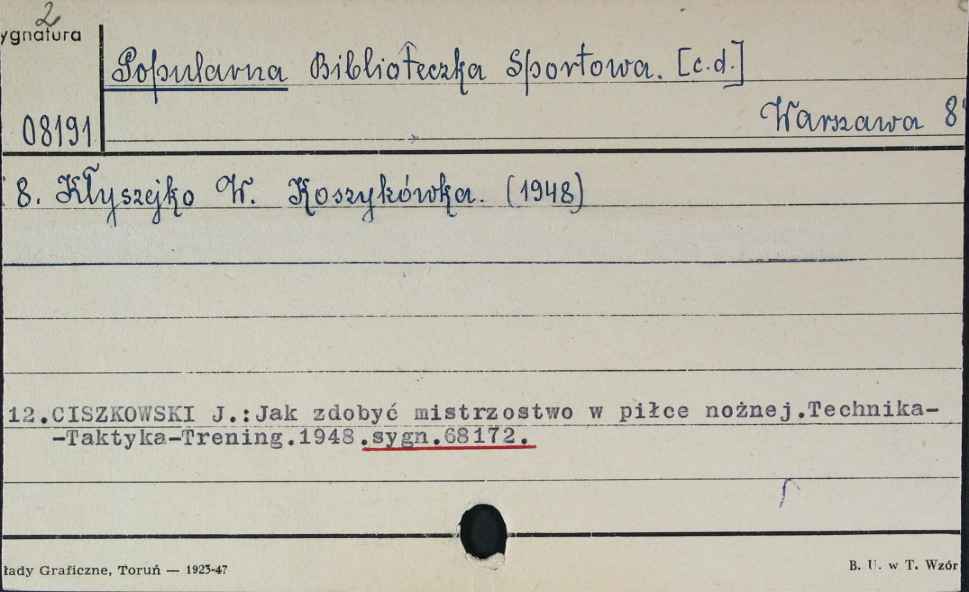 2
ygnatura
Popularna Biblioteczka Sportowa. [c.d.]
08191
Warszawa 8°
8. Kłyszejko W. Koszykówka. (1948)
12.CISZKOWSKI J.:Jak zdobyć mistrzostwo w piłce nożnej.Technika-
-Taktyka-Trening.1948.sygn.68172.
łady Graficzne, Toruń — 1923-47
B. U. w T. Wzór